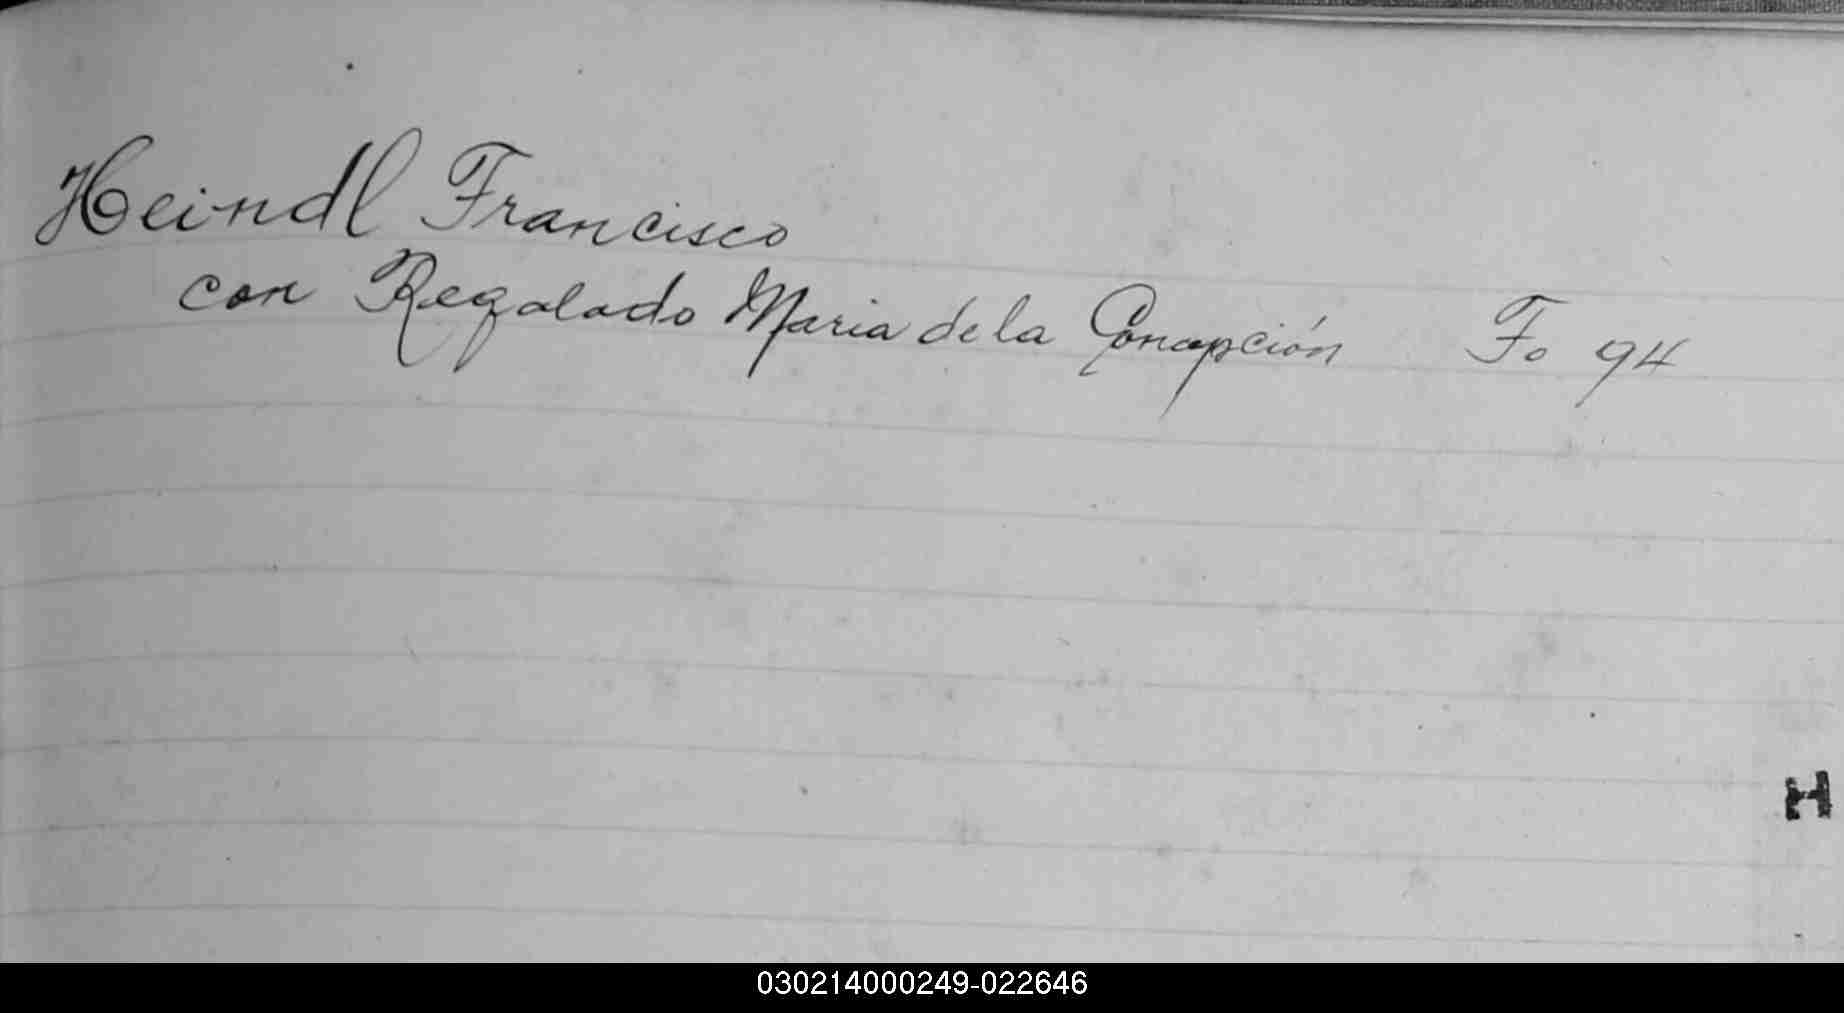 Heindl Francisco
con Regalado Maria de la Concepción Fo 94
H
030214000249-022646